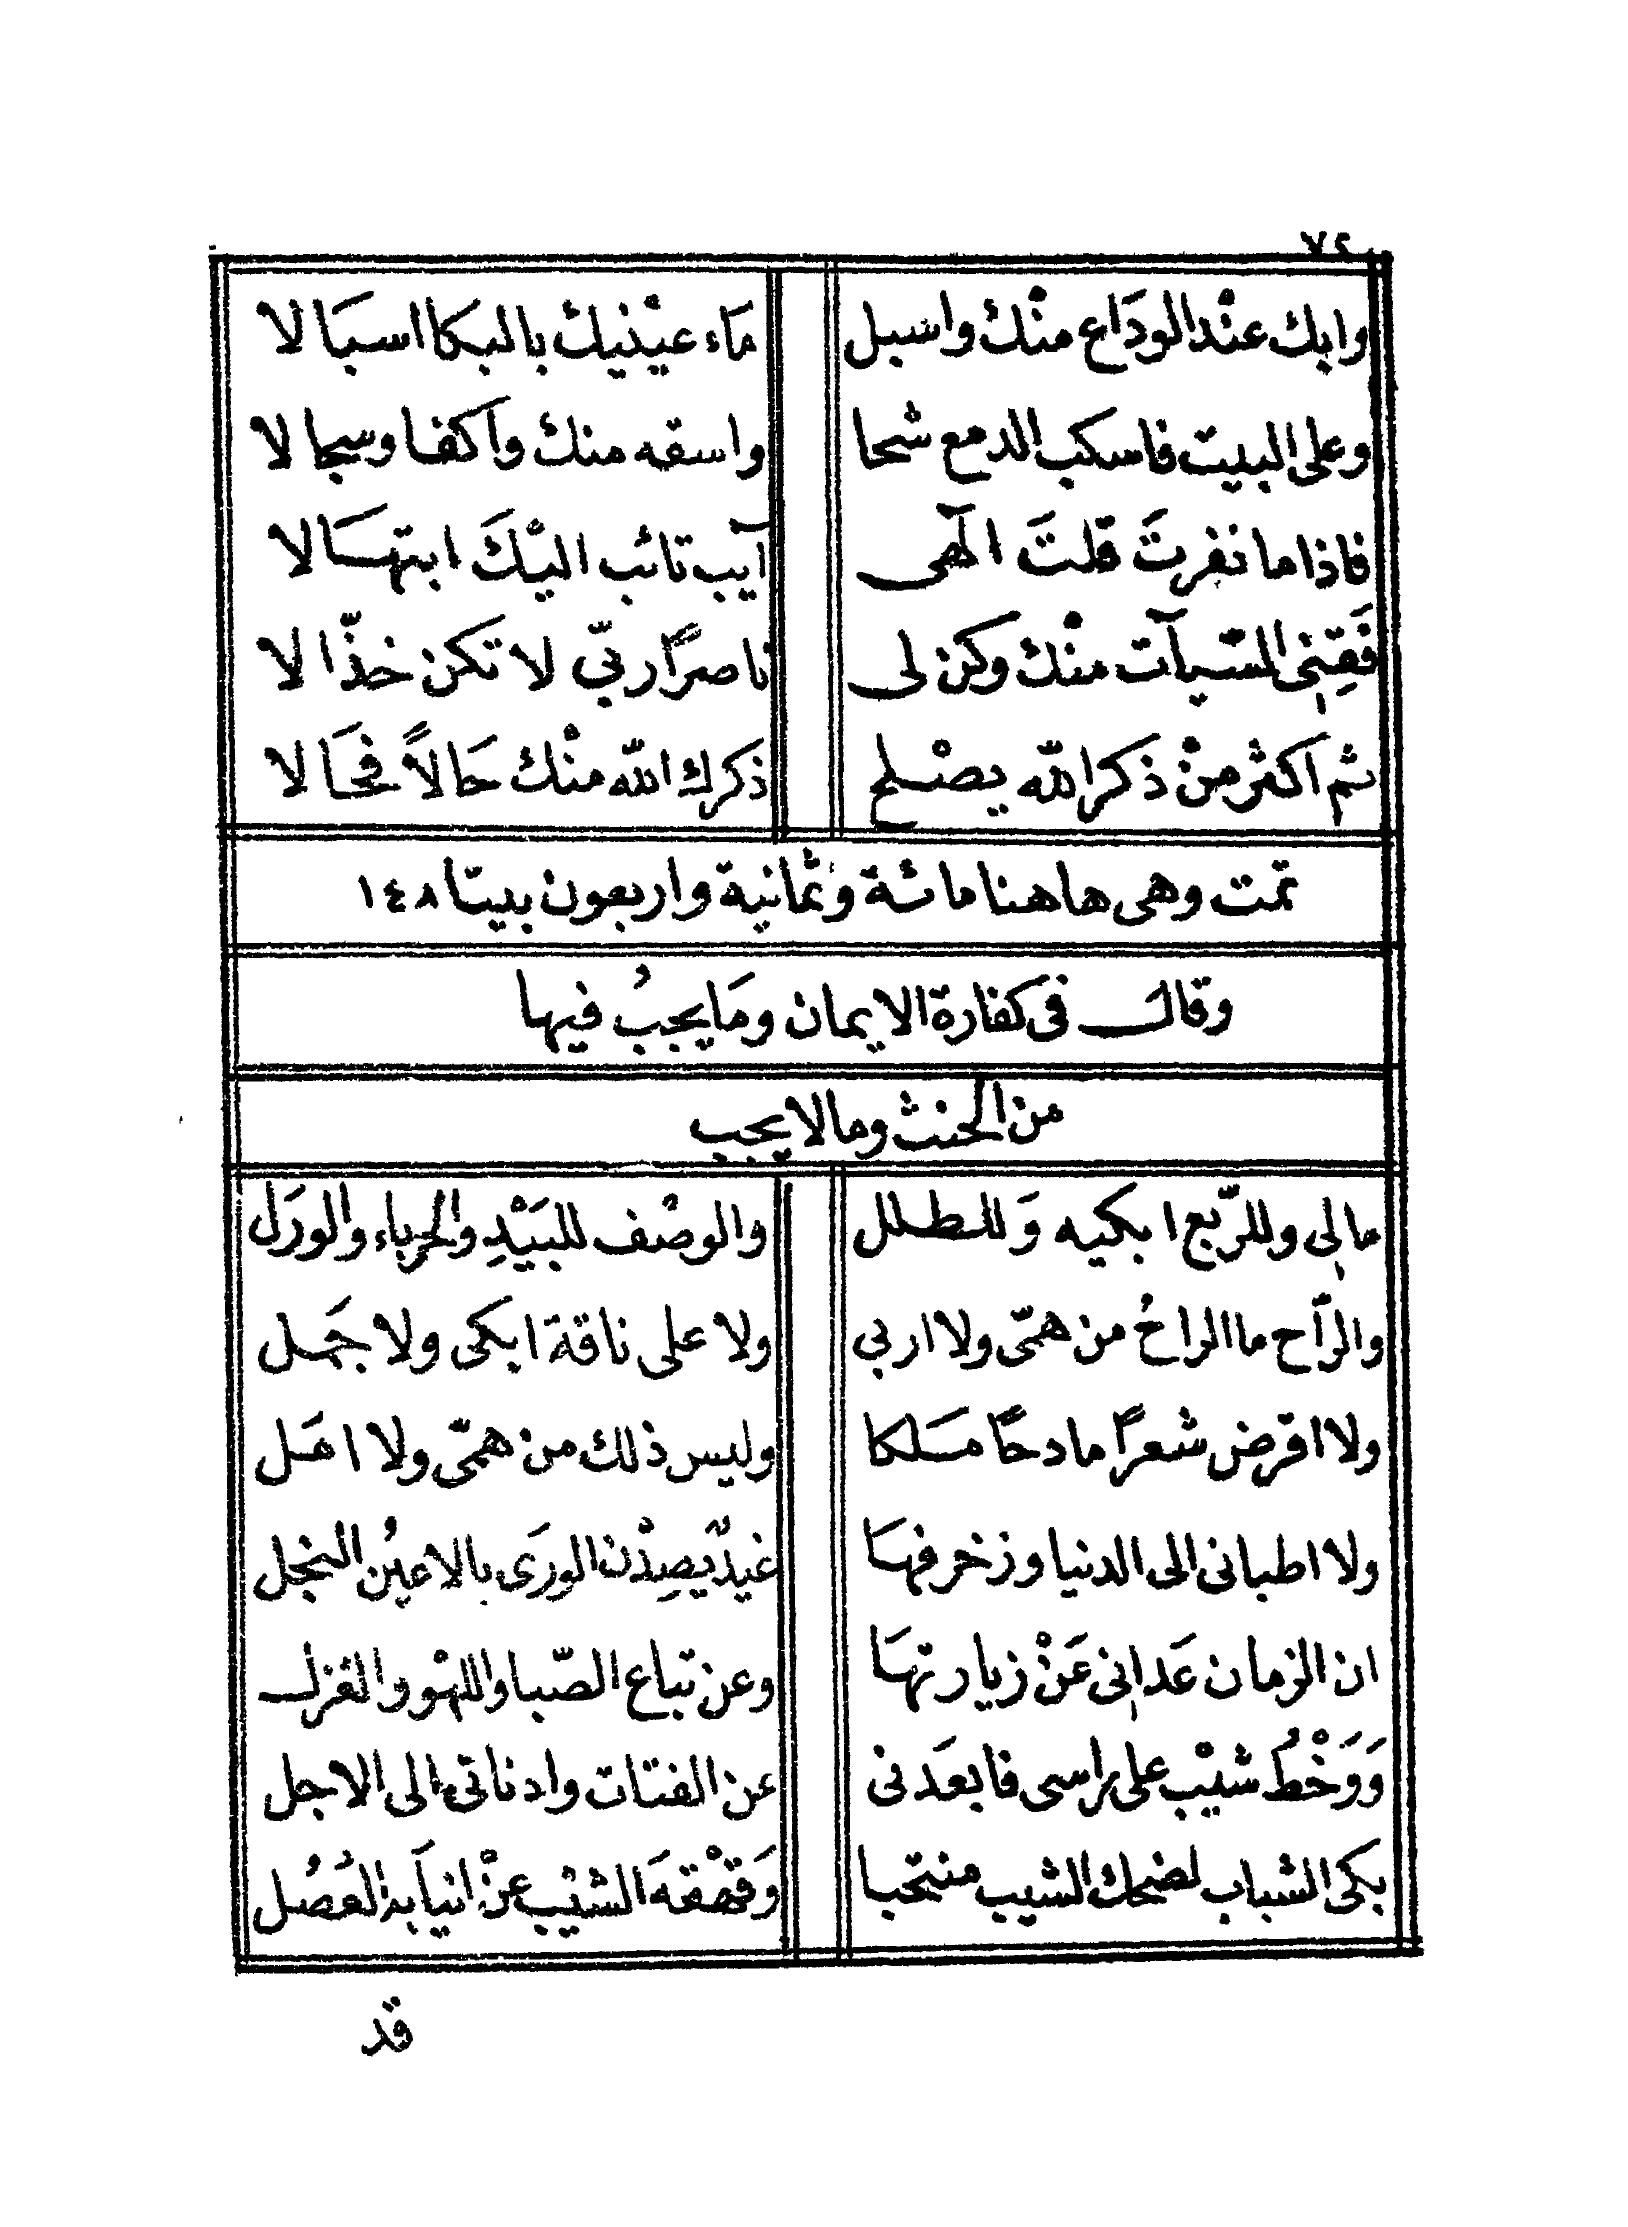 ٧٤
وابك عنْد الوَدَاع منْك واسبل ماَء عيْنيك بالبكا اسبَا لا
وعلى البيت فاسكب الدمع شحا واسقه منك وَاكفا وسجا لا
فاذا ما نفرتَ قلتَ الٓهى آيب تائب اليْكَ ابتهَا لا
فَقِنِى السّيآت منْك وكن لى ناصرًا ربّي لا تكن خذّا لا
ثم اَكثر منْ ذكر الله يصْلح ذكرك الله منْك حَالاً فحَا لا
تمت وهى هاهنا مائة وثمانية واربعون بيتا ١٤٨
وقال فى كفارة الايمان ومَا يجبُ فيها
من الحنث وما لا يجب
مالِى وللرّبع ابكيه وَللطلل والوصْف للبَيْدِ والحرباء والورَل
والرّاح ما الراحُ من همّى ولا اربي ولا على ناقة ابكى ولا جمَل
ولا اقرّض شعرًا مادحًا مَلكا وليس ذلك من همّى ولا اهَل
ولا اطبانى الى الدنيا وزخرفهَا غيدٌ يصِدْن الورَى بالاعيُن النجل
ان الزمان عَدانِى عَنْ زيارتهَا وعن تباع الصّبا واللهْو والغزل
وَوَخْطُ شيْب على راسى فابعَدنى عن الفتات وادناتى الى الاجل
بكى الشباب لضحك الشيب منتحبا وَقهْقهَ الشيْب عنْ انيَابه العُصُل
قد